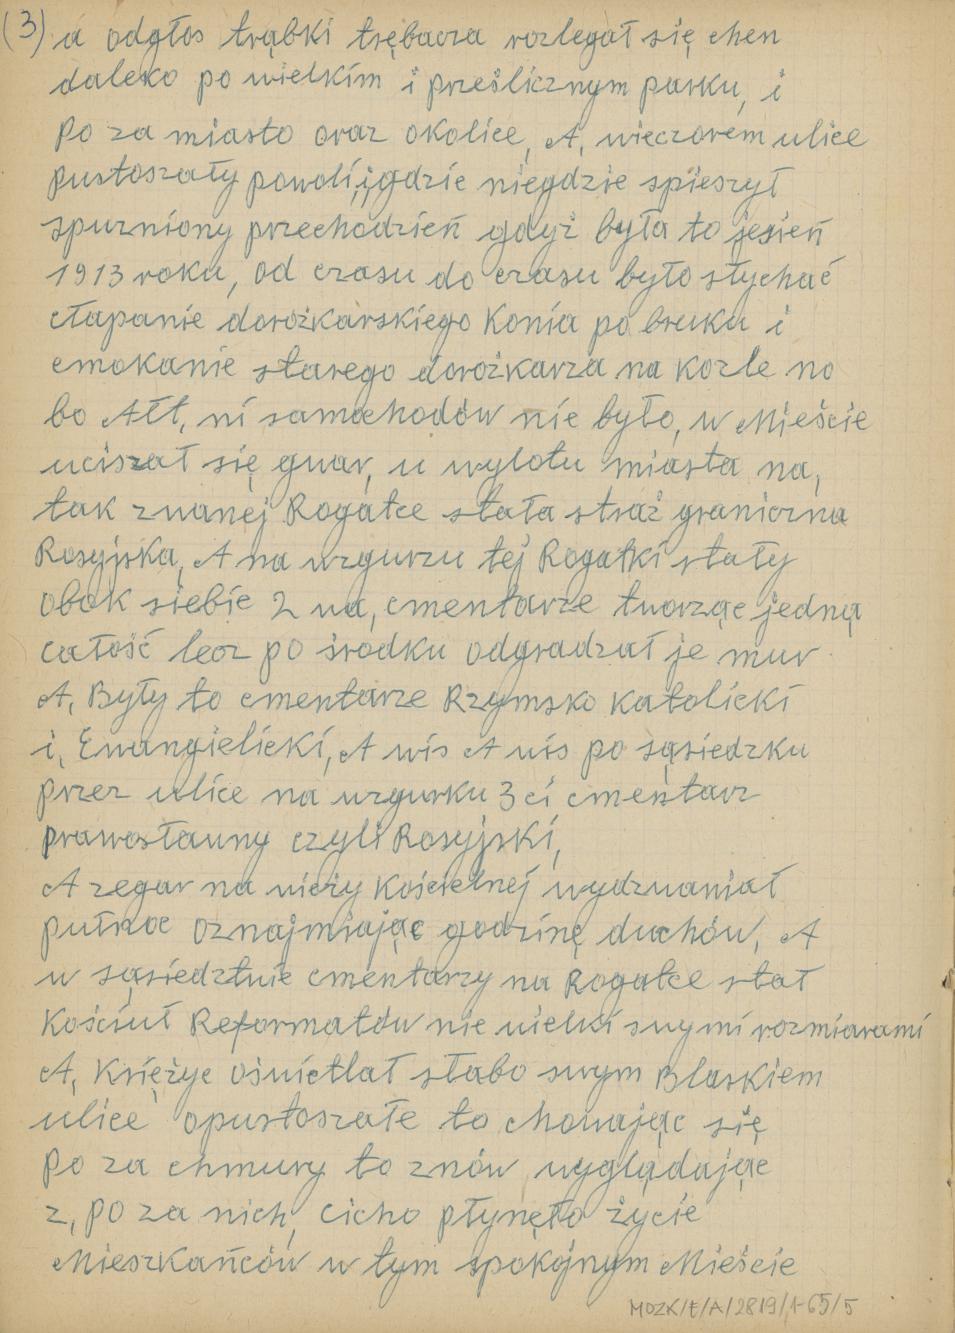 (3) a odgłos trąbki trębacza rozlegał się chen
daleko po wielkim i prześlicznym parku, i
po za miasto oraz okolice, A, wieczorem ulice
pustoszały powoli, i, gdzie niegdzie spieszył
spuzniony przechodzień gdyż była to jesień
1913 roku, od czasu do czasu było słychać
człapanie dorożkarskiego Konia po bruku i
cmokanie starego dorożkarza na kozle no
bo Ałt, ni samochodów nie było, w Mieście
uciszał się gwar, u wylotu miasta na,
tak zwanej Rogatce stała straż graniczna
Rosyjska, A na wzgurzu tej Rogatki stały
obok siebie 2 wa, cmentarze tworząc jedną
całość lecz po środku odgradzał je mur
A, Były to cmentarze Rzymsko Katolicki
i, Ewangielicki, A wis A wis po sąsiedzku
przez ulice na wzgurku 3 ci cmentarz
prawosławny czyli Rosyjski,
A zegar na wieży Kościelnej wydzwaniał
putnoc oznajmiając godzinę duchów, A
w sąsiedztwie cmentarzy na Rogatce stał
Kościuł Reformatów nie wielki swymi rozmiarami
A, Księżyc oświetlał słabo swym Blaskiem
ulice opustoszałe to chowając się
po za chmury to znów wyglądając
z, po za nich, cicho płynęło życie
Mieszkańców w tym spokojnym Mieście
MDZK/E/A/2819/1-65/5